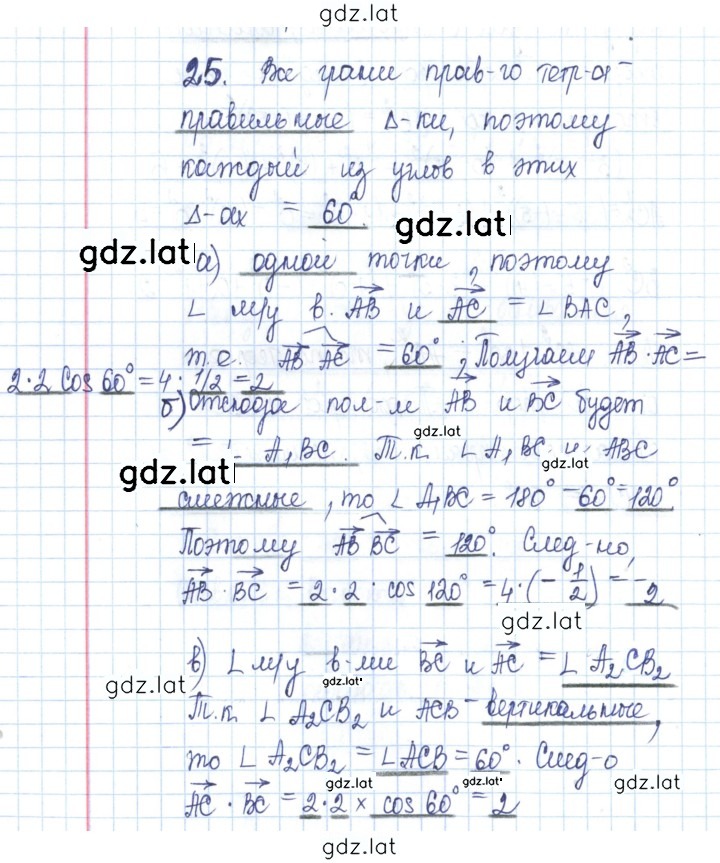 gdz.lat
25. Все грани прав-го тетр-а -
правильные Δ-ки, поэтому
каждый из углов в этих
Δ-ах = 60°
gdz.lat
gdz.lat
а) одной точки, поэтому
∠ м/у в. AB и AC = ∠ BAC,
т.е. AB AC = 60°; Получаем AB · AC =
2·2 cos 60° = 4 · 1/2 = 2
б) Отсюда пол-м AB и BC будет
gdz.lat
= ∠ A₁BC. Т.к. ∠ A₁BC и ABC
gdz.lat
gdz.lat
смежные, то ∠ A₁BC = 180° - 60° = 120°.
Поэтому AB BC = 120°. След-но,
AB · BC = 2 · 2 · cos 120° = 4·(-1/2) = -2
gdz.lat
в) ∠ м/у в-ми BC и AC = ∠ A₂CB₂
gdz.lat
gdz.lat
Т.к ∠ A₂CB₂ и ACB - вертикальные,
то ∠ A₂CB₂ = ∠ACB = 60°. След-о
gdz.lat
gdz.lat
gdz.lat
AC · BC = 2·2 × cos 60° = 2
gdz.lat